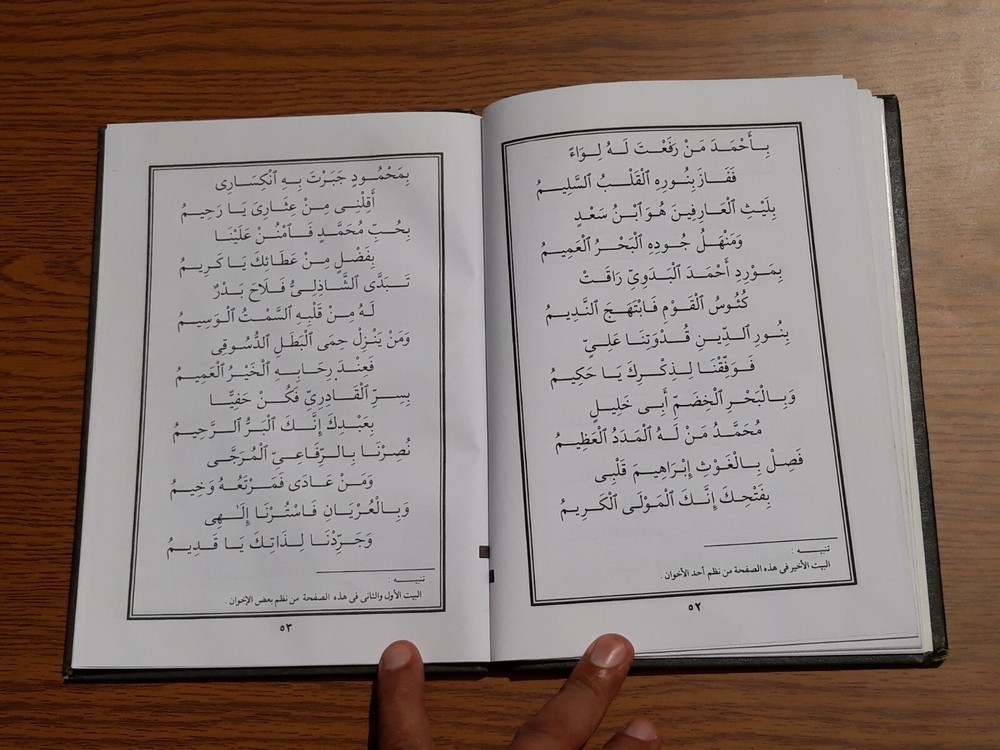 بِأَحْمَدَ مَنْ رَفَعْتَ لَهُ لِوَاءً
فَفَازَ بِنُورِهِ الْقَلْبُ السَّلِيمُ
بِلَيْثِ الْعَارِفِينَ هُوَ ابْنُ سَعْدٍ
وَمَنْهَلُ جُودِهِ الْبَحْرُ الْعَمِيمُ
بِمَوْرِدِ أَحْمَدَ الْبَدَوِيِّ رَاقَتْ
كُئُوسُ الْقَوْمِ فَابْتَهَجَ النَّدِيمُ
بِنُورِ الدِّينِ قُدْوَتِنَا عَلِيٍّ
فَوَفِّقْنَا لِذِكْرِكَ يَا حَكِيمُ
وَبِالْبَحْرِ الْخِضَمِّ أَبِى خَلِيلٍ
مُحَمَّدُ مَنْ لَهُ الْمَدَدُ الْعَظِيمُ
فَصِلْ بِالْغَوْثِ إِبْرَاهِيمَ قَلْبِى
بِفَتْحِكَ إِنَّكَ الْمَوْلَى الْكَرِيمُ
تنبيـــه :
البيت الأخير فى هذه الصفحة من نظم أحد الأخوان .
٥٢
بِمَحْمُودٍ جَبَرْتَ بِهِ انْكِسَارِى
أَقِلْنِى مِنْ عِثَارِىَ يَا رَحِيمُ
بِحُبِّ مُحَمَّدٍ فَامْنُنْ عَلَيْنَا
بِفَضْلٍ مِنْ عَطَائِكَ يَا كَرِيمُ
تَبَدَّى الشَّاذِلِىُّ فَلَاحَ بَدْرٌ
لَهُ مِنْ قَلْبِهِ السَّمْتُ الْوَسِيمُ
وَمَنْ يَنْزِلْ حِمَى الْبَطَلِ الدُّسُوقِى
فَعِنْدَ رِحَابِهِ الْخَيْرُ الْعَمِيمُ
بِسِرِّ الْقَادِرِىِّ فَكُنْ حَفِيًّا
بِعَبْدِكَ إِنَّكَ الْبَرُّ الرَّحِيمُ
نُصِرْنَا بِالرِّفَاعِىِّ الْمُرَجَّى
وَمَنْ عَادَى فَمَرْتَعُهُ وَخِيمُ
وَبِالْعُرْيَانِ فَاسْتُرْنَا إِلَهِى
وَجَرِّدْنَا لِذَاتِكَ يَا قَدِيمُ
تنبيـــه :
البيت الأول والثانى فى هذه الصفحة من نظم بعض الإخوان .
٥٣